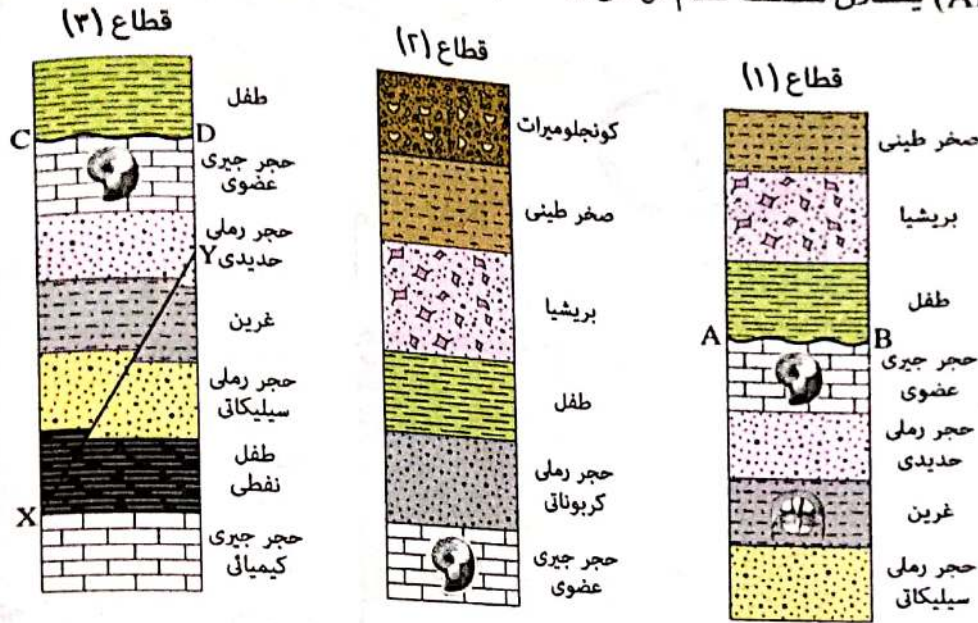 قطاع (١)
صخر طيني
بريشيا
طفل
A B
حجر جيري
عضوي
حجر رملي
حديدي
غرين
حجر رملي
سيليكاتي
قطاع (٢)
كونجلوميرات
صخر طيني
بريشيا
طفل
حجر رملي
كربوناتي
حجر جيري
عضوي
قطاع (٣)
طفل
C D
حجر جيري
عضوي
حجر رملي
Y حديدي
غرين
حجر رملي
سيليكاتي
طفل
نفطي
X
حجر جيري
كيميائي